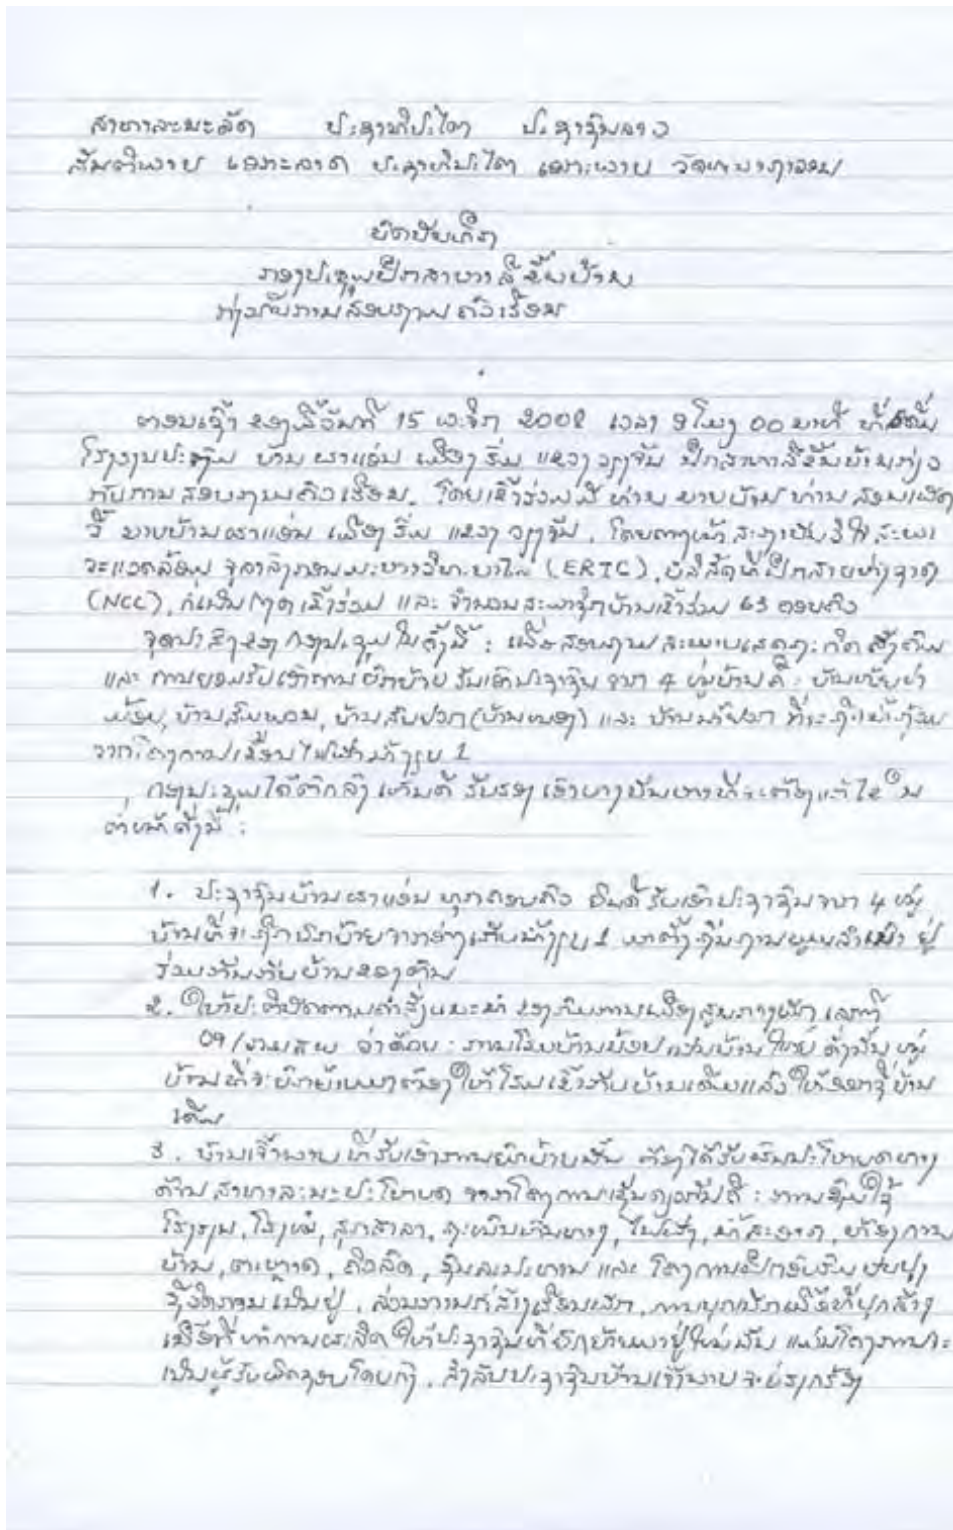 ສາທາລະນະລັດ ປະຊາທິປະໄຕ ປະຊາຊົນລາວ
ສັນຕິພາບ ເອກະລາດ ປະຊາທິປະໄຕ ເອກະພາບ ວັດທະນາຖາວອນ
ບົດບັນທຶກ
ກອງປະຊຸມປຶກສາຫາລືຂັ້ນບ້ານ
ກ່ຽວກັບການສອບຖາມຄົວເຮືອນ
ຕອນເຊົ້າ ຂອງວັນທີ 15 ພະຈິກ 2008 ເວລາ 9 ໂມງ 00 ນາທີ ທີ່
ໂຮງຮຽນປະຖົມ ບ້ານ ຜາແອ່ນ ເມືອງ ຮົ່ມ ແຂວງ ວຽງຈັນ ປຶກສາຫາລືຂັ້ນບ້ານກ່ຽວ
ກັບການ ສອບຖາມຄົວເຮືອນ. ໂດຍເຂົ້າຮ່ວມມີ ທ່ານ ນາຍບ້ານ ທ່ານ
ນາຍບ້ານຜາແອ່ນ ເມືອງ ຮົ່ມ ແຂວງ ວຽງຈັນ, ໂດຍຕາງໜ້າ ສະຖາບັນວິໄຈສະພາ
ວະແວດລ້ອມ ຈຸລາລົງກອນມະຫາວິທະຍາໄລ (ERIC), ບໍລິສັດທີ່ປຶກສາແຫ່ງຊາດ
(NCC), ກໍ່ເປັນກຽດເຂົ້າຮ່ວມ ແລະ ຈຳນວນສະມາຊິກບ້ານເຂົ້າຮ່ວມ 63 ຄອບຄົວ
ຈຸດປະສົງຂອງກອງປະຊຸມໃນຄັ້ງນີ້ : ເພື່ອສອບຖາມສະພາບເສດຖະກິດ ສັງຄົມ
ແລະ ການຍອມຮັບເອົາການຍົກຍ້າຍ ຮັບເອົາປະຊາຊົນ ຈາກ 4 ໝູ່ບ້ານຄື: ບ້ານ
ບ້ານ, ບ້ານສົບຢວກ ແລະ ບ້ານນ້ຳຢວກ ທີ່ຈະຖືກນ້ຳຖ້ວມ
ຈາກໂຄງການເຂື່ອນໄຟຟ້ານ້ຳງຽບ 1
ກອງປະຊຸມໄດ້ຕົກລົງ ເຫັນດີ ຮັບຮອງ ເອົາບາງບັນຫາທີ່ຈະຕ້ອງແກ້ໄຂໃນ
ຕໍ່ໜ້າ ດັ່ງນີ້ :
1. ປະຊາຊົນບ້ານຜາແອ່ນ ທຸກຄອບຄົວ ຍິນດີຮັບເອົາປະຊາຊົນຈາກ 4 ໝູ່
ບ້ານທີ່ຈະຖືກຍົກຍ້າຍຈາກອ່າງເກັບນ້ຳງຽບ 1 ມາຕັ້ງຖິ່ນຖານພູມລຳເນົາ ຢູ່
ຮ່ວມກັນກັບບ້ານຂອງຕົນ
2. ໃຫ້ປະຕິບັດຕາມຄຳສັ່ງແນະນຳ ຂອງກົມການເມືອງສູນກາງພັກ ເລກທີ
09/ກມສພ ວ່າດ້ວຍ: ການໂຮມບ້ານນ້ອຍເປັນບ້ານໃຫຍ່ ດັ່ງນັ້ນ ໝູ່
ບ້ານທີ່ຈະຍົກຍ້າຍມາຕ້ອງໃຫ້ໂຮມເຂົ້າກັບບ້ານເດີມແລ້ວໃຫ້ໃຊ້ຊື່ບ້ານ
ເດີມ
3. ບ້ານເຈົ້າພາບ ທີ່ຮັບເອົາການຍົກຍ້າຍນັ້ນ ຕ້ອງໄດ້ຮັບຜົນປະໂຫຍດທາງ
ດ້ານ ສາທາລະນະປະໂຫຍດ ຈາກໂຄງການເຊັ່ນດຽວກັນຄື: ການຊົມໃຊ້
ໂຮງຮຽນ, ໂຮງໝໍ, ສຸກສາລາ, ຖະໜົນຫົນທາງ, ໄຟຟ້າ, ນ້ຳສະອາດ, ຫ້ອງການ
ບ້ານ, ຕະຫຼາດ, ຄິວລົດ, ຊົນລະປະທານ ແລະ ໂຄງການຝຶກອົບຮົມ
ຊີວິດການເປັນຢູ່, ສ່ວນການກໍ່ສ້າງເຮືອນພັກ, ການບຸກເບີກເນື້ອທີ່ປຸກສ້າງ
ເນື້ອທີ່ທຳການຜະລິດ ໃຫ້ປະຊາຊົນທີ່ຍົກຍ້າຍມາຢູ່ໃໝ່ນັ້ນ ແມ່ນໂຄງການຈະ
ເປັນຜູ້ຮັບຜິດຊອບໂດຍກົງ, ສຳລັບປະຊາຊົນບ້ານເຈົ້າພາບ